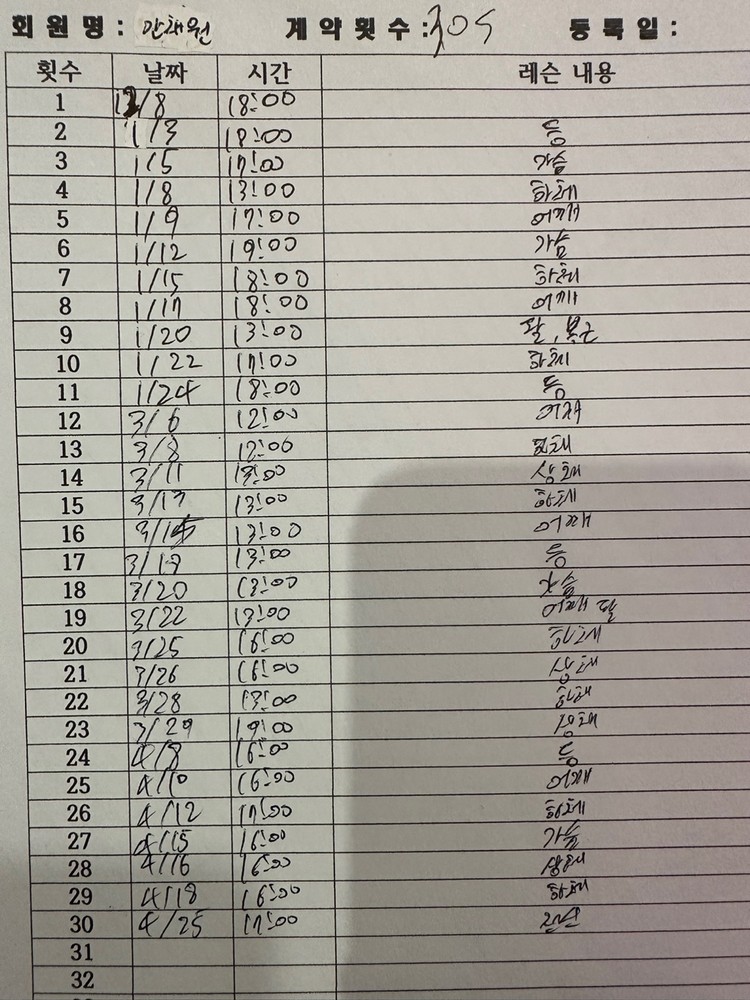 회원명: 안채원 계약횟수: 30S 등록일:
횟수 날짜 시간 레슨 내용
1 12/8 18:00
2 1/3 18:00 등
3 1/5 17:00 가슴
4 1/8 13:00 하체
5 1/9 17:00 어깨
6 1/12 19:00 가슴
7 1/15 18:00 하체
8 1/17 18:00 어깨
9 1/20 13:00 팔, 복근
10 1/22 17:00 하체
11 1/24 18:00 등
12 3/6 12:00 어깨
13 3/8 12:00 하체
14 3/11 13:00 상체
15 3/13 13:00 하체
16 3/15 13:00 어깨
17 3/19 13:00 등
18 3/20 13:00 가슴
19 3/22 13:00 어깨 팔
20 3/25 16:00 하체
21 3/26 16:00 상체
22 3/28 13:00 하체
23 3/29 19:00 상체
24 4/8 16:00 등
25 4/10 16:00 어깨
26 4/12 17:00 하체
27 4/15 16:00 가슴
28 4/16 16:00 상체
29 4/18 16:00 하체
30 4/25 17:00
31
32